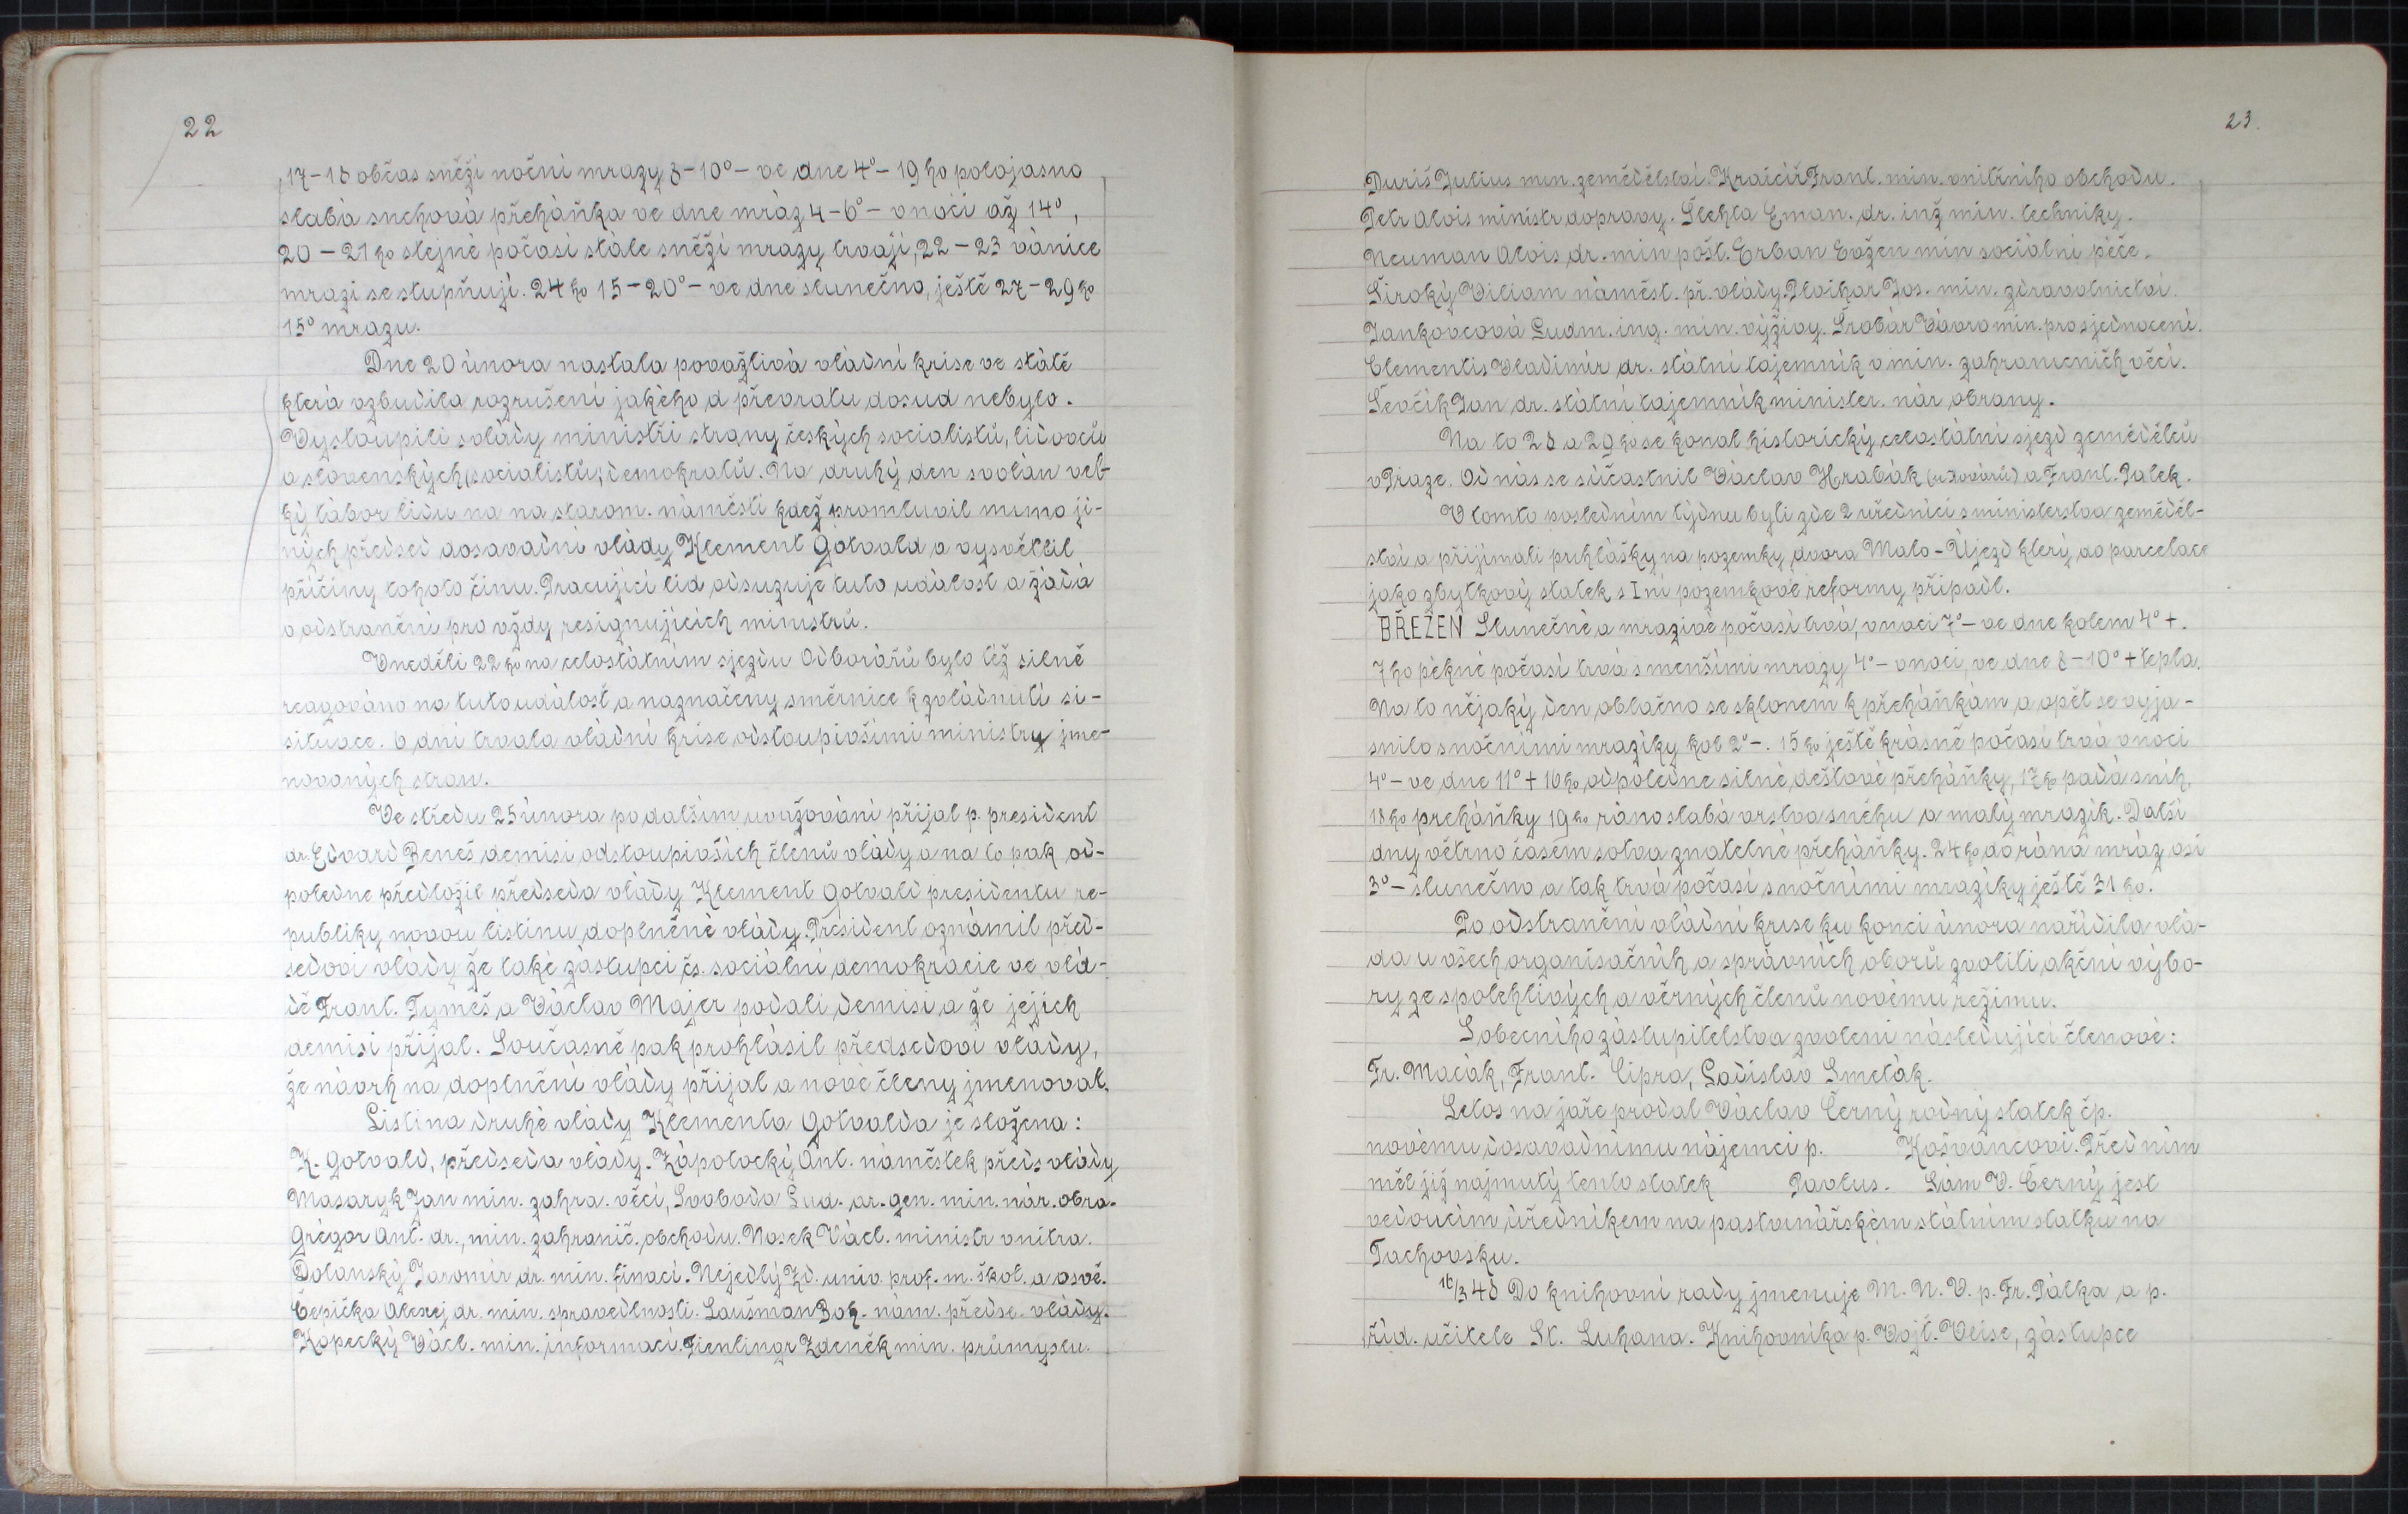 22
17-18 občas sněží noční mrazy 8-10°- ve dne 4°- 19ho polojasno
slabá sněhová přeháňka ve dne mráz 4-6°- vnoci až 14°,
20-21ho stejné počasí stále sněží mrazy trvají, 22-23 vánice
mrazi se stupňují. 24ho 15-20°- ve dne slunečno, ještě 27-29ho
15° mrazu.
Dne 20 února nastala povážlivá vládní krise ve státě
která vzbudila rozrušení jakého d převratu dosud nebylo.
Vystoupili svlády ministři strany českých socialistů, lidovců
a slovenských (socialistů; demokratů. Na druhý den svolán vel-
ký tábor lidu na na starom. náměstí kdež promluvil mimo ji-
ných předsed dosavadní vlády Klement Gotvald a vysvětlil
příčiny tohoto činu. Pracující lid odsuzuje tuto událost a žádá
o odstranění pro vždy resignujících ministrů.
Vneděli 22ho na celostátním sjezdu Odborářů bylo též silně
reagováno na tuto událost a naznačeny směrnice kzvládnutí si-
situace. 6 dní trvala vládní krise odstoupivšími ministry jme-
novaných stran.
Ve středu 25 února po dalším uvažování přijal p. president
dr. Edvard Beneš demisi odstoupivších členů vlády a na to pak od-
poledne předložil předseda vlády Klement Gotvald presidentu re-
publiky novou listinu doplněné vlády. President oznámil před-
sedovi vlády že také zástupci čs. sociální demokrácie ve vlá-
dě Frant. Tymeš a Václav Majer podali demisi a že jejich
demisi přijal. Současně pak prohlásil předsedovi vlády,
že návrh na doplnění vlády přijal a nové členy jmenoval.
Listina druhé vlády Klementa Gotvalda je složena:
K. Gotvald, předseda vlády. Zápotocký Ant. náměstek předs vlády
Masaryk Jan min. zahra. věcí, Svoboda Lud. ar. gen. min. nár. obra.
Grégor Ant. dr., min. zahranič. obchodu. Nosek Václ. ministr vnitra.
Dolanský Jaromír dr. min. finací. Nejedlý Zd. univ. prof. m. škol. a osvě.
Čepička Alexej dr. min. spravedlnosti. Laušman Boh. nám. předse. vlády.
Kopecký Václ. min. informací. Fienlingr Zdeněk min. průmyslu.
23.
Duriš Julius min. zemědělství. Krajčíř Frant. min. vnitřního obchodu.
Petr Alois ministr dopravy. Šlehta Eman. dr. inž min. techniky.
Neuman Alois dr. min pošt. Erban Evžen min sociální péče.
Široký Viliam náměst. př. vlády. Plojhar Jos. min. zdravotnictví.
Jankovcová Ludm. ing. min. výživy. Šrobár Vávro min. pro sjednocení.
Clementis Vladimír dr. státní tajemník v min. zahraničních věcí.
Ševčík Jan dr. státní tajemník minister. nár obrany.
Na to 28 a 29ho se konal historický celostátní sjezd zemědělců
vPraze. Od nás se súčastnil Václav Hrabák a Frant. Palek.
V tomto posledním týdnu byli zde 2 uředníci sministerstva zeměděl-
ství a přijímali prihlášky na pozemky dvora Malo-Újezd který do parcelace
jako zbytkový statek s I ní pozemkové reformy připadl.
BŘEZEN Slunečné a mrazivé počasí trvá, vnoci 7°- ve dne kolem 4°+.
7ho pěkné počasí trvá smenšími mrazy 4°- vnoci, ve dne 8-10°+ tepla.
Na to nějaký den oblačno se sklonem k přeháňkám a opět se vyja-
snilo snočními mrazíky kol 2°-. 15ho ještě krásné počasí trvá vnoci
4°- ve dne 11°+ 16ho odpoledne silné dešťové přeháňky, 17ho padá sníh,
18ho preháňky 19ho ráno slabá vrstva sněhu a malý mrazík. Další
dny větrno časem sotva znatelné přeháňky. 24ho do rána mráz asi
3°- slunečno a tak trvá počasí snočními mrazíky ještě 31ho.
Po odstranění vládní krise ku konci února nařídila vlá-
da u všech organisačních a správních oborů zvoliti akční výbo-
ry ze spolehlivých a věrných členů novému režimu.
Sobecního zástupitelstva zvoleni následující členové:
Fr. Macák, Frant. Cipra, Ladislav Smeták.
Letos na jaře prodal Václav Černý rodný statek čp.
novému dosavadnímu nájemci p. Košváncovi. Před ním
měl již najmutý tento statek Pavlus. Sám V. Černý jest
vedoucím úředníkem na pastvinářském státním statku na
Tachovsku.
16/3 48 Do knihovní rady jmenuje M. N. V. p. Fr. Pálka a p.
říd. učitele St. Luhana. Knihovníka p. Vojt. Veise, zástupce